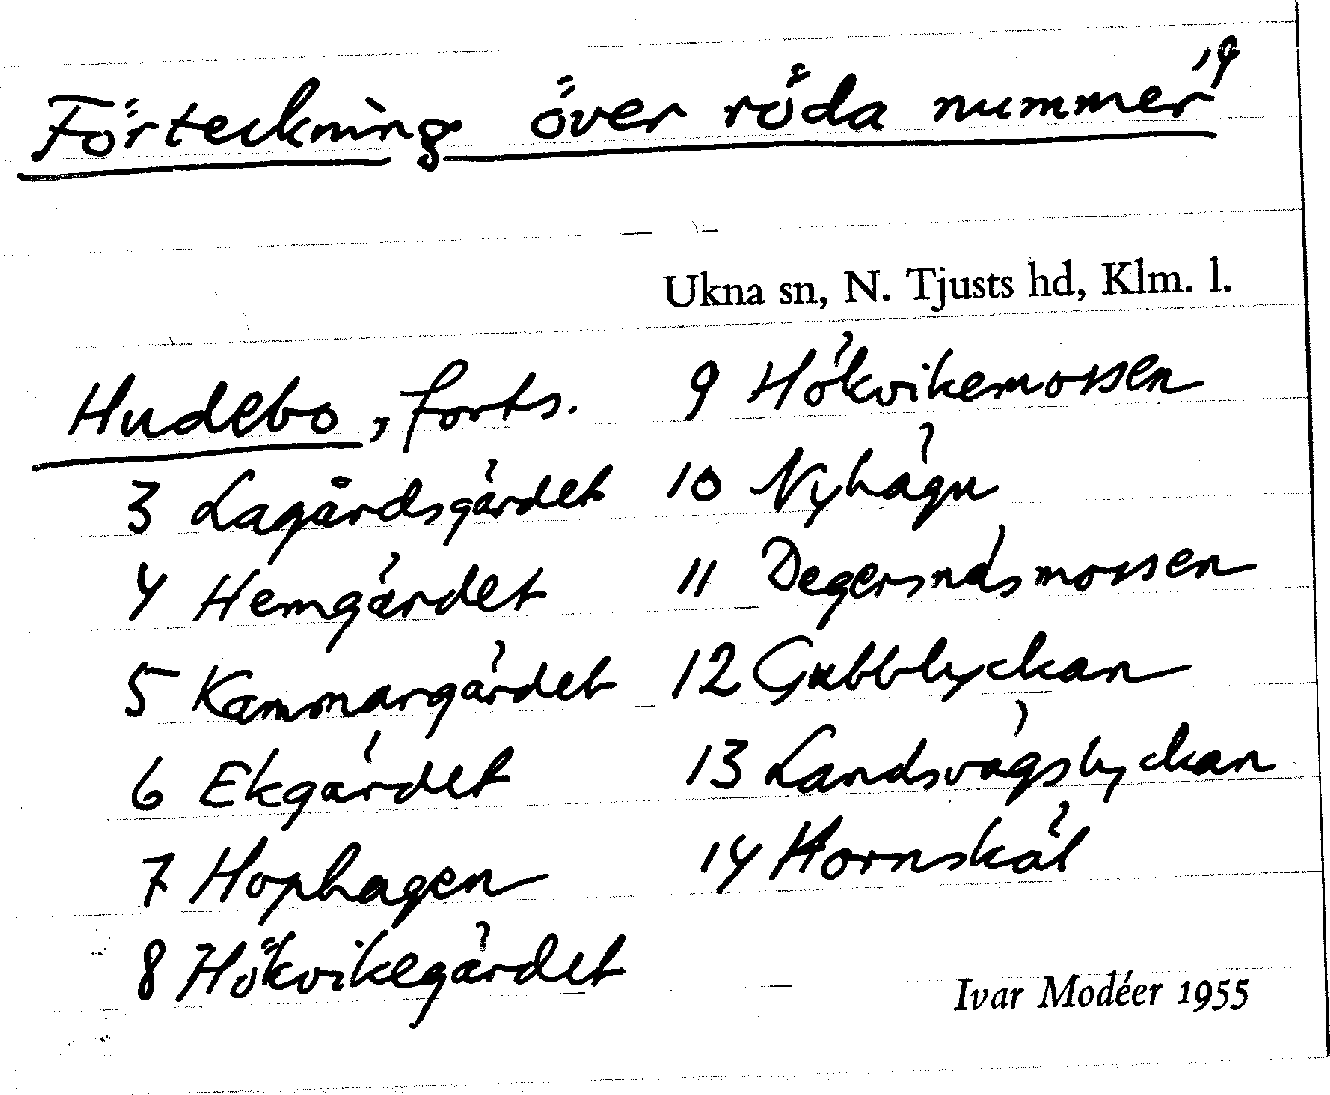 Förteckning över röda nummer 19
Ukna sn, N. Tjusts hd, Klm. l.
Hudebo, forts.
3 Lagårdsgärdet
4 Hemgärdet
5 Kammargärdet
6 Ekgärdet
7 Hophagen
8 Hökvikegärdet
9 Hökvikemossen
10 Nyhägn
11 Degersnäsmossen
12 Gubblyckan
13 Landsvägslyckan
14 Hornskäl
Ivar Modéer 1955